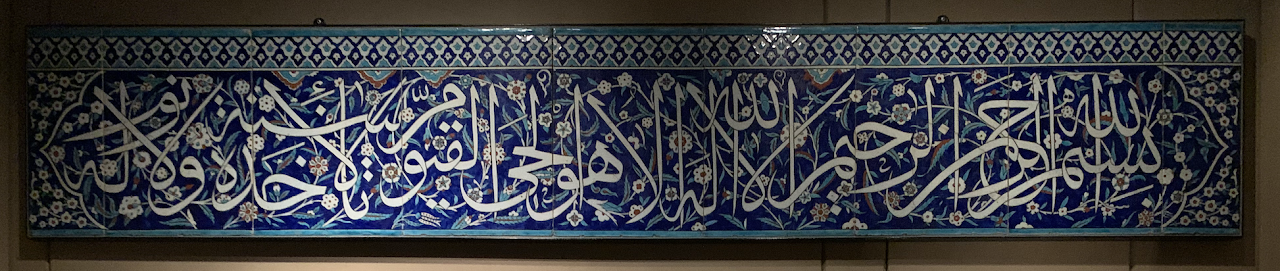 بسم الله الرحمن الرحيم الله لا اله الا هو الحي القيوم لا تأخذه سنة ولا نوم له